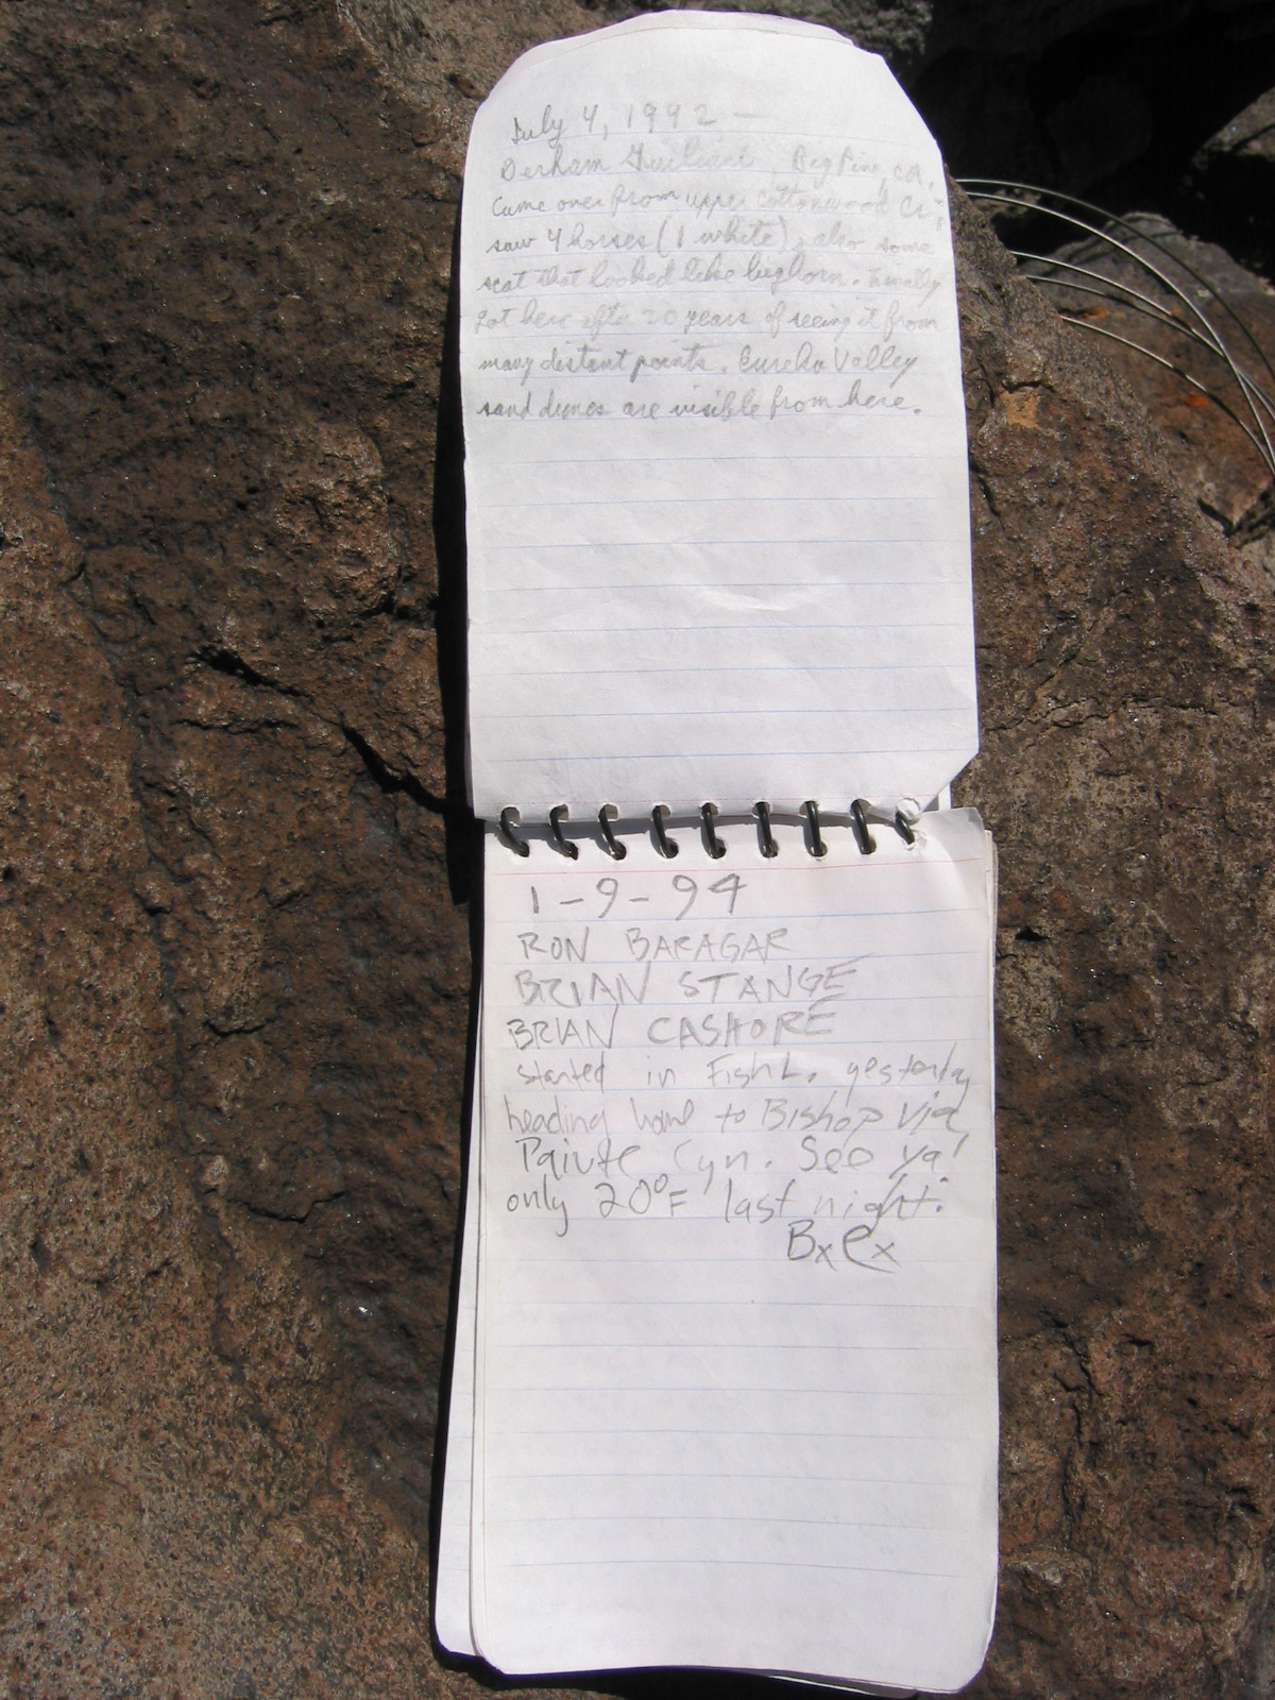 July 4, 1992 —
Derham Giuliani, Big Pine, CA.
Came over from upper Cottonwood Cr.,
saw 4 horses (1 white), also some
scat that looked like bighorn. Finally
got here after 20 years of seeing it from
many distant points. Eureka Valley
sand dunes are visible from here.
1-9-94
RON BARAGAR
BRIAN STANGE
BRIAN CASHORE
started in Fish L. yesterday
heading home to Bishop via
Paiute Cyn. See ya!
only 20°F last night.